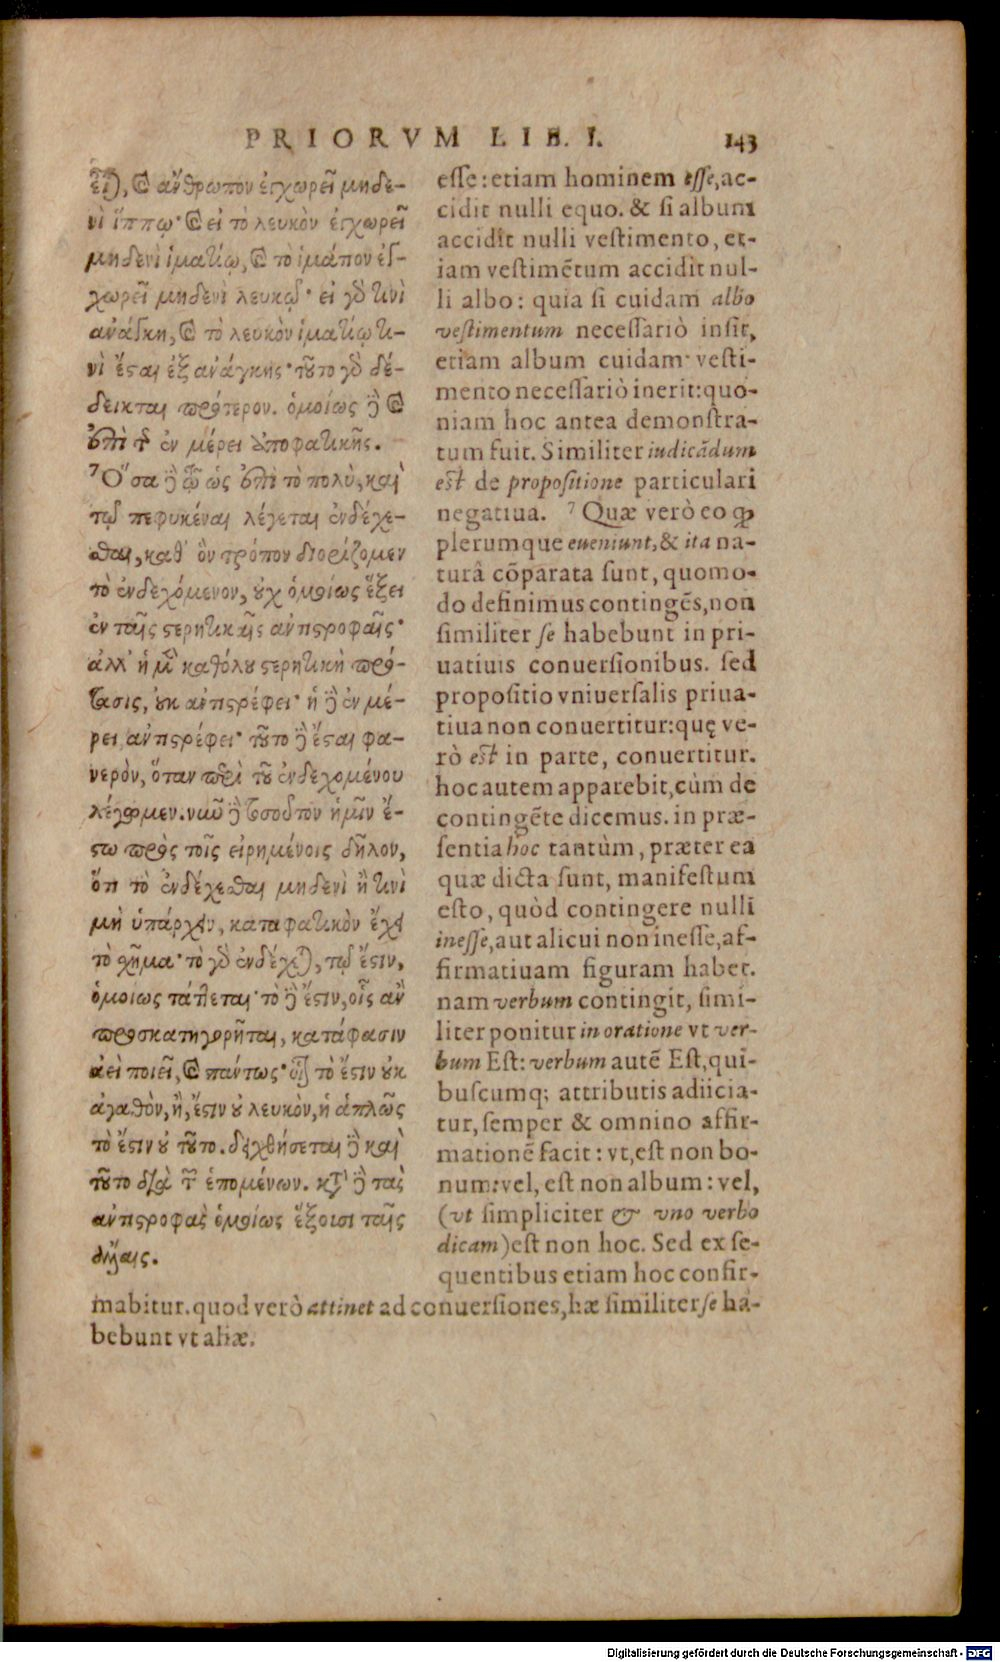 PRIORVM LIB. I. 143
εἶναι, καὶ ἄνθρωπον ἐγχωρεῖ μηδε-
νὶ ἵππῳ· καὶ εἰ τὸ λευκὸν ἐγχωρεῖ
μηδενὶ ἱματίῳ, καὶ τὸ ἱμάτιον ἐγ-
χωρεῖ μηδενὶ λευκῷ· εἰ γὸ τινὶ
ἀνάγκη, καὶ τὸ λευκὸν ἱματίῳ τι-
νὶ ἔσται ἐξ ἀνάγκης· τοῦτο γὸ δέ-
δεικται πρότερον. ὁμοίως δὲ καὶ
ἐπὶ τῆς ἐν μέρει ἀποφατικῆς.
7 Ὅσα δὲ τῷ ὡς ἐπὶ τὸ πολὺ, καὶ
τῷ πεφυκέναι λέγεται ἐνδέχε-
σθαι, καθ᾽ ὃν τρόπον διορίζομεν
τὸ ἐνδεχόμενον, οὐχ ὁμοίως ἕξει
ἐν ταῖς στερητικαῖς ἀντιστροφαῖς·
ἀλλ᾽ ἡ μὲν καθόλου στερητικὴ πρό-
τασις, οὐκ ἀντιστρέφει· ἡ δὲ ἐν μέ-
ρει ἀντιστρέφει· τοῦτο δὲ ἔσται φα-
νερὸν, ὅταν περὶ τοῦ ἐνδεχομένου
λέγωμεν. νῦν δὲ τοσοῦτον ἡμῖν ἔ-
στω πρὸς τοῖς εἰρημένοις δῆλον,
ὅτι τὸ ἐνδέχεσθαι μηδενὶ ἢ τινὶ
μὴ ὑπάρχειν, καταφατικὸν ἔχει
τὸ σχῆμα· τὸ γὸ ἐνδέχεται, τῷ ἔστιν,
ὁμοίως τάττεται· τὸ δὲ ἔστιν, οἷς ἂν
προσκατηγορῆται, κατάφασιν
ἀεὶ ποιεῖ, καὶ πάντως· οἷον τὸ ἔστιν οὐκ
ἀγαθὸν, ἢ, ἔστιν οὐ λευκὸν, ἢ ἁπλῶς
τὸ ἔστιν οὐ τοῦτο. δειχθήσεται δὲ καὶ
τοῦτο διὰ τῶν ἑπομένων. κατὰ δὲ τὰς
ἀντιστροφὰς ὁμοίως ἕξουσι ταῖς
ἄλλαις.
esse: etiam hominem esse, ac-
cidit nulli equo. & si album
accidit nulli vestimento, et-
iam vestimētum accidit nul-
li albo: quia si cuidam albo
vestimentum necessariò insit,
etiam album cuidam vesti-
mento necessariò inerit: quo-
niam hoc antea demonstra-
tum fuit. Similiter iudicādum
est de propositione particulari
negatiua. 7 Quæ verò eo ꝙ
plerumque eueniunt, & ita na-
turâ cōparata sunt, quomo-
do definimus contingēs, non
similiter se habebunt in pri-
uatiuis conuersionibus. sed
propositio vniuersalis priua-
tiua non conuertitur: quę ve-
rò est in parte, conuertitur.
hoc autem apparebit, cùm de
contingēte dicemus. in præ-
sentia hoc tantùm, præter ea
quæ dicta sunt, manifestum
esto, quòd contingere nulli
inesse, aut alicui non inesse, af-
firmatiuam figuram habet.
nam verbum contingit, simi-
liter ponitur in oratione vt ver-
bum Est: verbum autē Est, qui-
buscumq; attributis adiicia-
tur, semper & omnino affir-
mationē facit: vt, est non bo-
num: vel, est non album: vel,
(vt simpliciter & vno verbo
dicam) est non hoc. Sed ex se-
quentibus etiam hoc confir-
mabitur. quod verò attinet ad conuersiones, hæ similiter se ha-
bebunt vt aliæ.
Digitalisierung gefördert durch die Deutsche Forschungsgemeinschaft - DFG